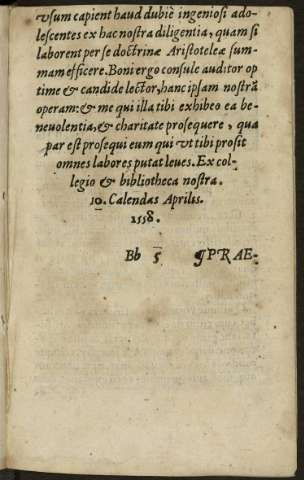 vsum capient haud dubiè ingeniosi ado-
lescentes ex hac nostra diligentia, quam si
laborent per se doctrinæ Aristoteleæ sum-
mam efficere. Boni ergo consule auditor op
time & candide lector, hanc ipsam nostrã
operam: & me qui illa tibi exhibeo ea be-
neuolentia, & charitate prosequere, qua
par est prosequi eum qui vt tibi prosit
omnes labores putat leues. Ex col-
legio & bibliotheca nostra.
10. Calendas Aprilis.
1558.
Bb 5 ¶PRAE-